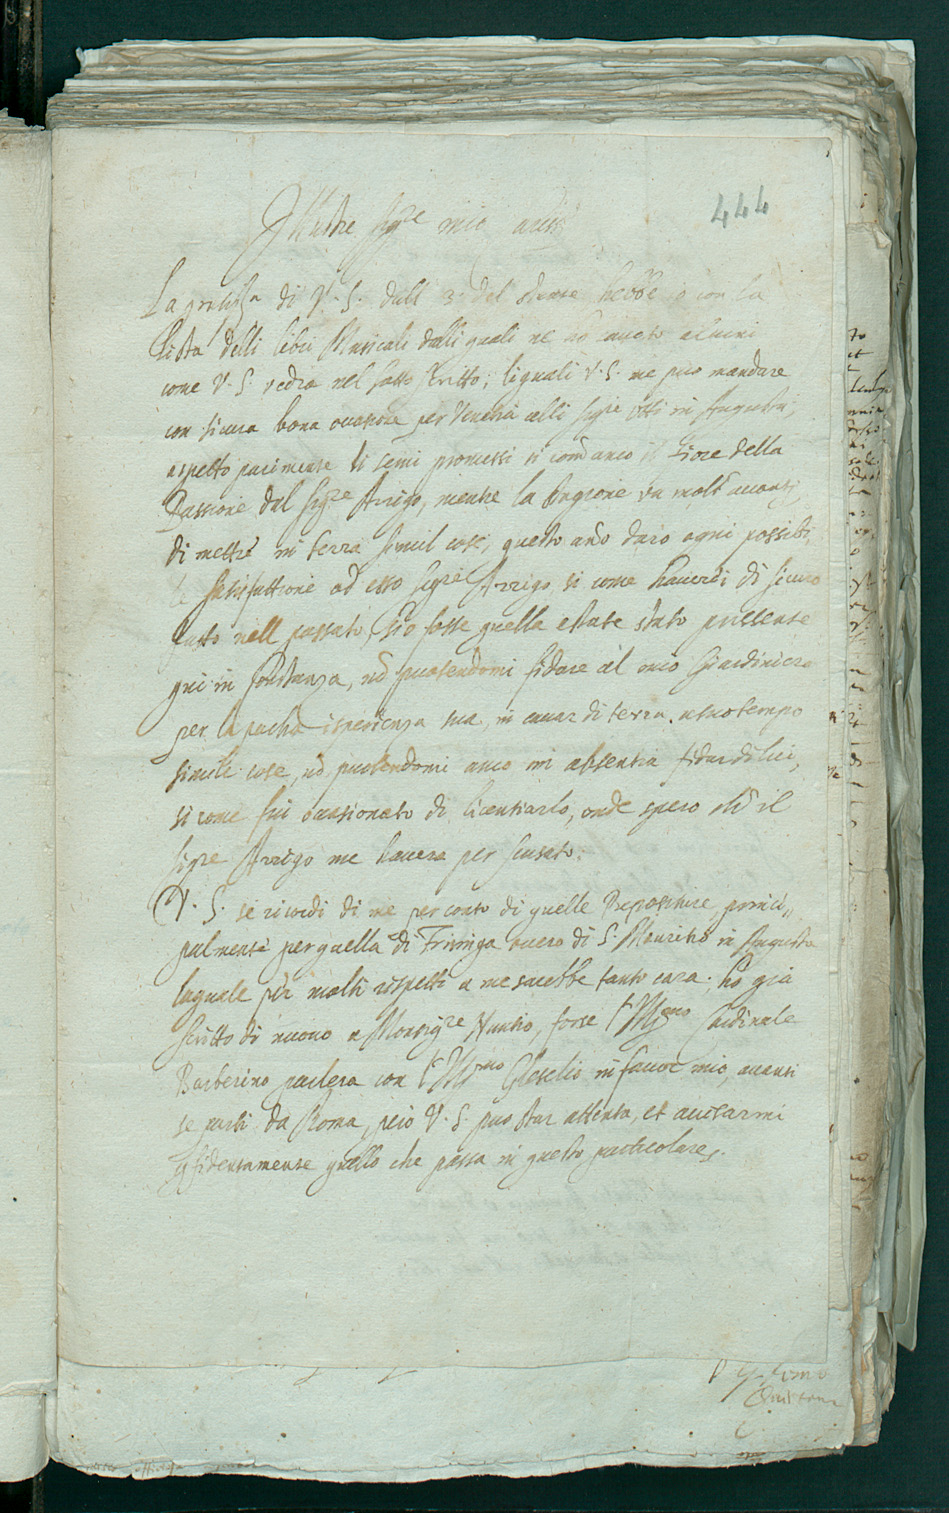 444
Illustre Sig.re mio
La di V. S. delli 3. del stante hebbe io con la
Lista delli libri Musicali dalli quali ne ho alcuni
come V. S. vedra nel sotto scritto; li quali V. S. me puo mandare
con sicura bona occasione per Venetia alli Sig.ri in Augusta;
aspetto parimente li semi promessi si com'anco il Fiore della
Passione dal Sig.re Arrigo, mentre la stagione va molt'avanti,
di mettere in terra simil cose, questo año daro ogni possibi
le satisfattione ad esso Sig.re Arrigo, si come haverei di sicuro
fatto nell passato, s'io fosse quella estate stato presente
qui in Constanza, nõ potendomi fidare al mio Giardiniero
per la pocha isperienza sua, in cavar di terra a suo tempo
simili cose, nõ potendomi anco in absentia fidar di lui,
si come fui occasionato di licentiarlo, onde spero chè il
Sig.re Arrigo me havera per scusato.
V. S. se ricordi di me per conto di quelle Prepositure, princi„
palmente per quella di Frisinga overo di S. Mauritio in Augusta
laquale per molti rispetti a me sarebbe tanto cara; ho già
scritto di nuovo a Monsig.re Nuntio, forse l'Ill.mo Cardinale
Barberino parlera con l'Ill.mo Cleselio in favor mio, avanti
se parti da Roma, però V. S. puo star attenta, et avisarmi
confidentamente quello che passa in questo particolare.